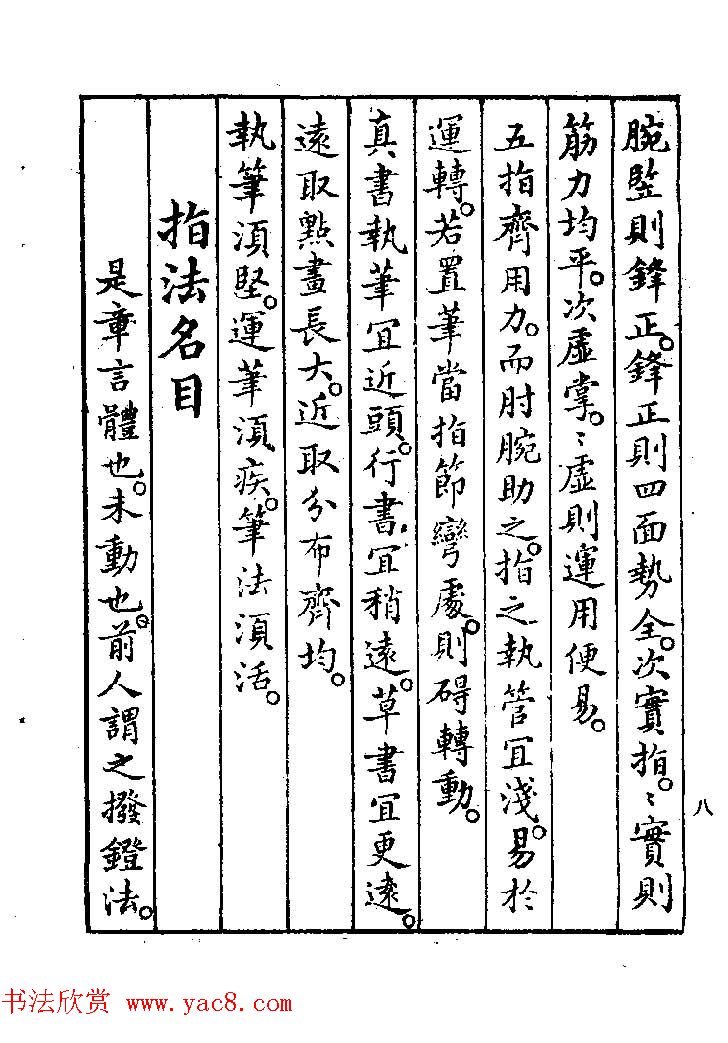 腕竪則鋒正。鋒正則四面勢全。次實指。〻實則
筋力均平。次虛掌。〻虛則運用便易。
五指齊用力。而肘腕助之。指之執管宜淺。易於
運轉。若置筆當指節彎處。則碍轉動。
真書執筆宜近頭。行書宜稍遠。草書宜更遠。
遠取點畫長大。近取分布齊均。
執筆須堅。運筆須疾。筆法須活。
指法名目
是章言體也。未動也。前人謂之撥鐙法。
八
书法欣赏 www.yac8.com